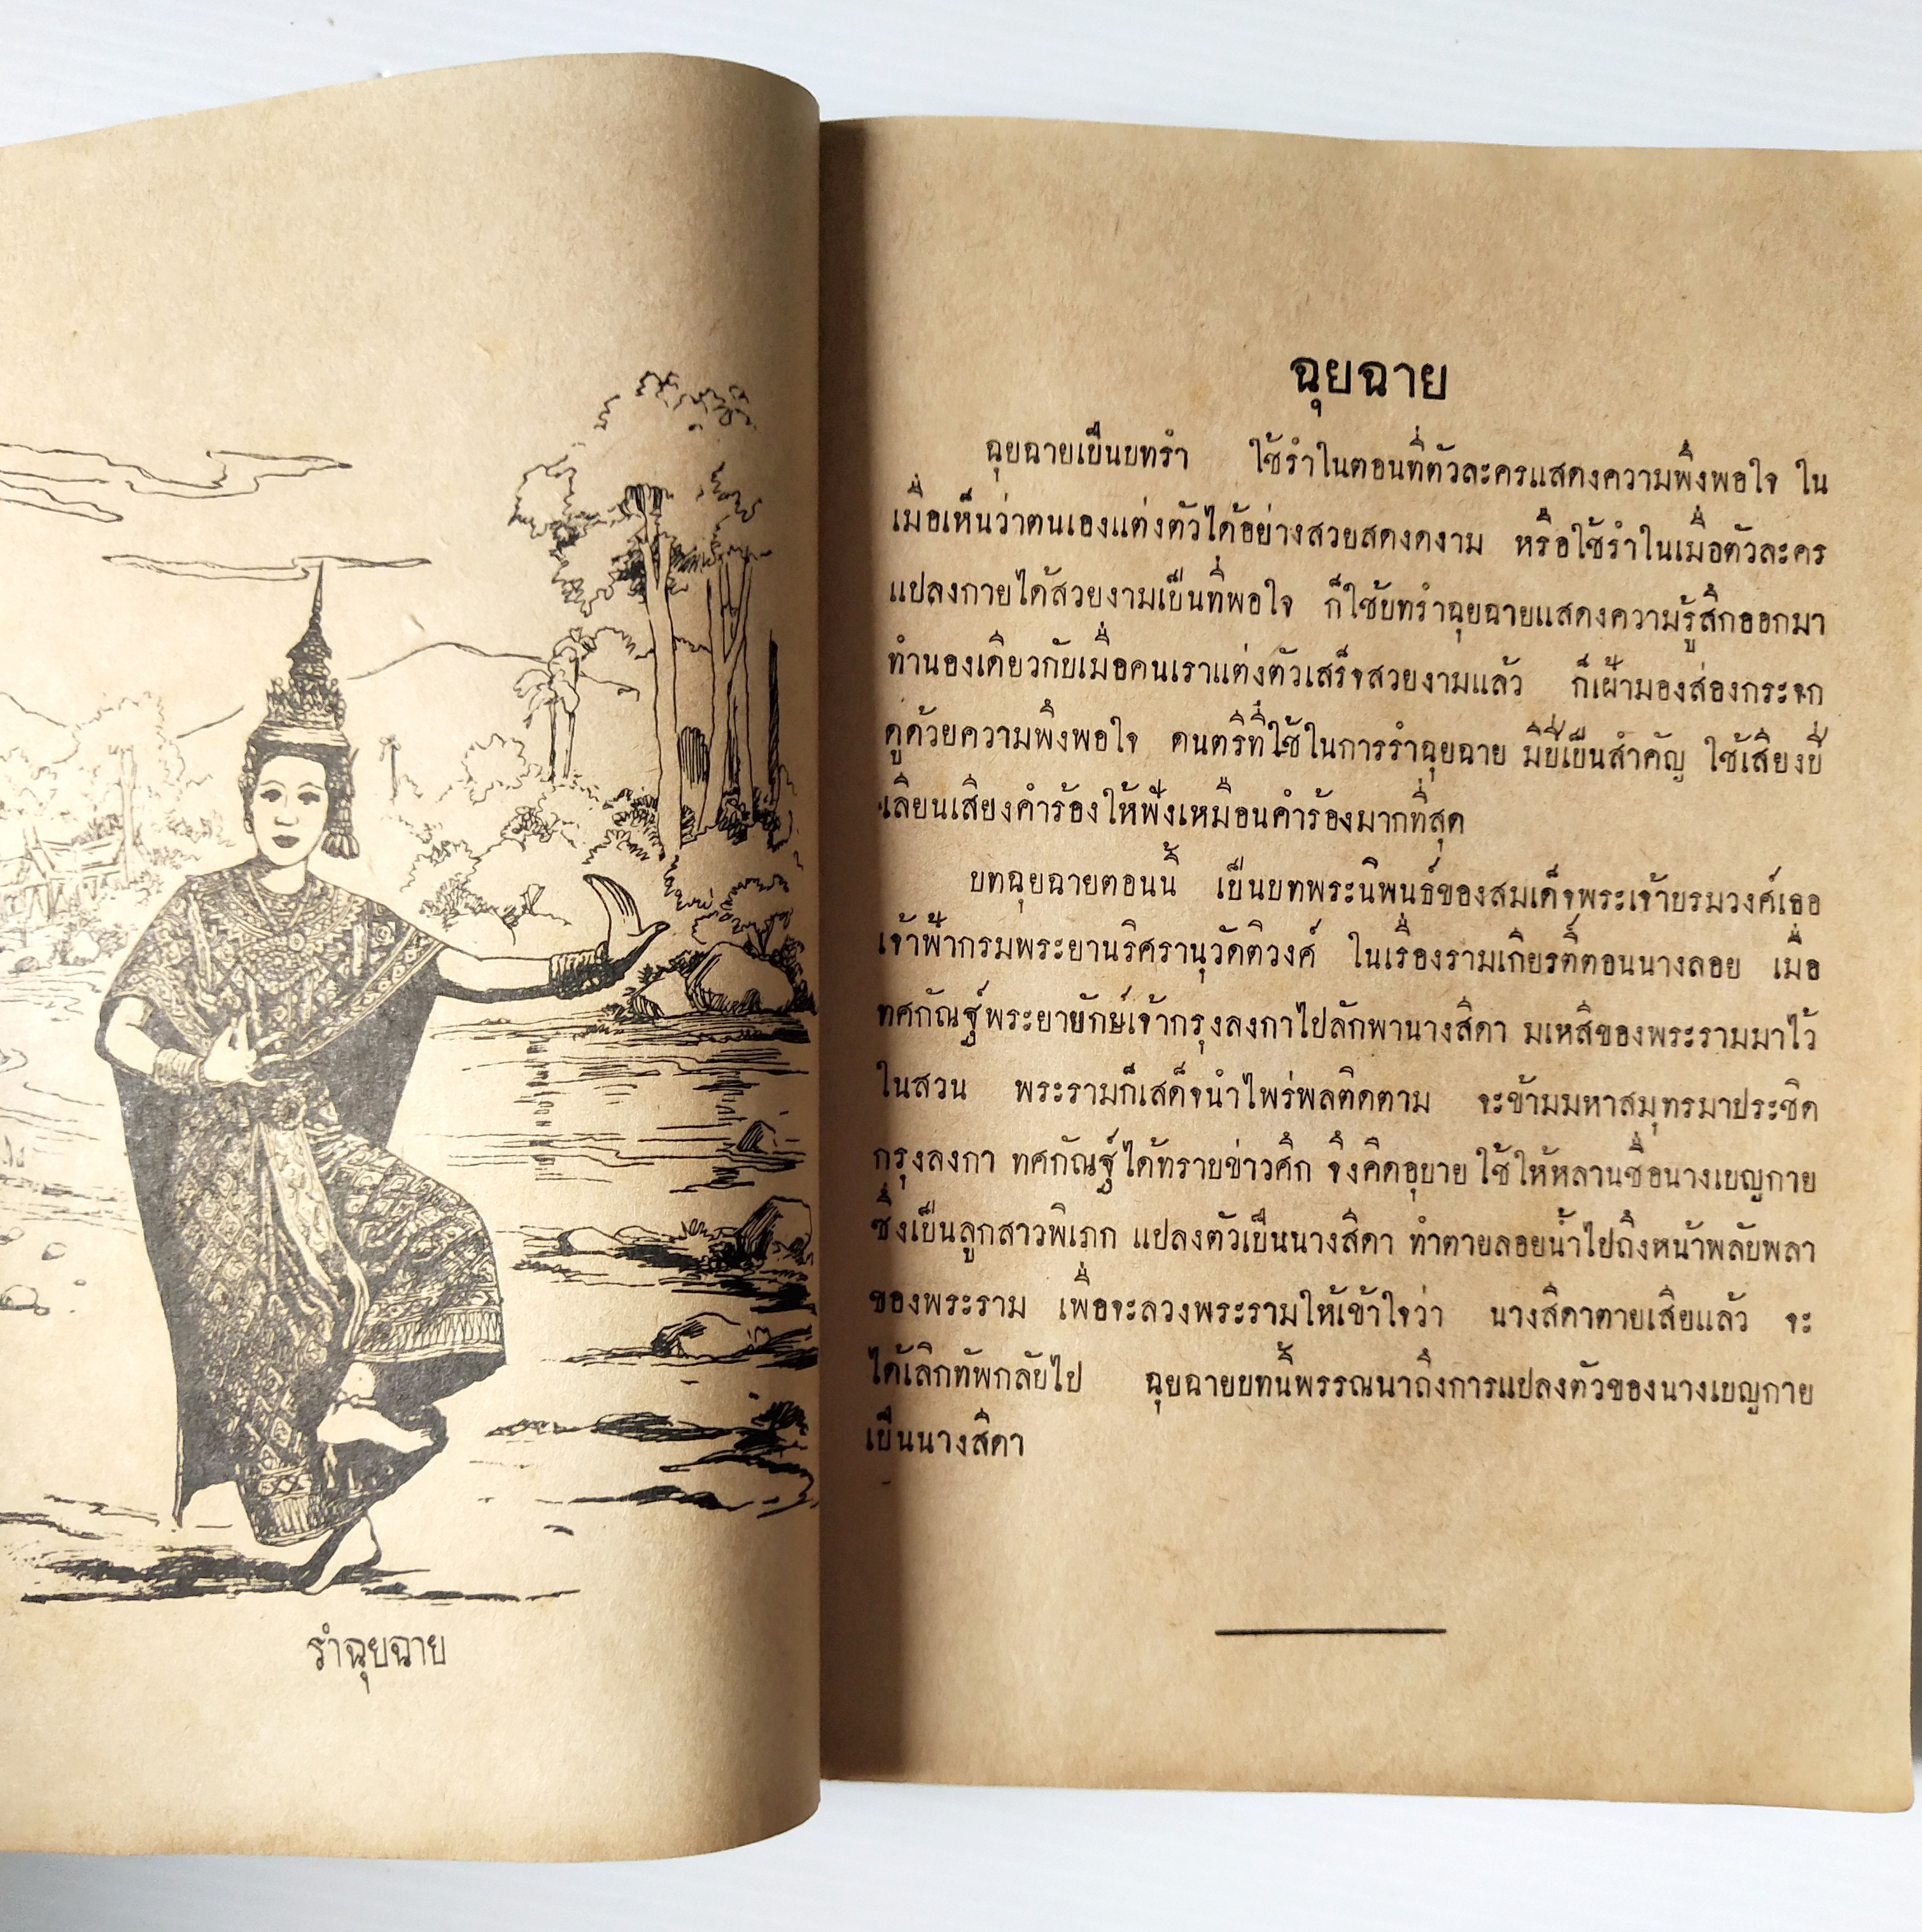 รำฉุยฉาย
ฉุยฉาย
ฉุยฉายเป็นบทรำ ใช้รำในตอนที่ตัวละครแสดงความพึงพอใจ ใน
เมื่อเห็นว่าตนเองแต่งตัวได้อย่างสวยสดงดงาม หรือใช้รำในเมื่อตัวละคร
แปลงกายได้สวยงามเป็นที่พอใจ ก็ใช้บทรำฉุยฉายแสดงความรู้สึกออกมา
ทำนองเดียวกับเมื่อคนเราแต่งตัวเสร็จสวยงามแล้ว ก็เฝ้ามองส่องกระจก
ดูด้วยความพึงพอใจ ดนตรีที่ใช้ในการรำฉุยฉาย มีปี่เป็นสำคัญ ใช้เสียงปี่
เลียนเสียงคำร้องให้ฟังเหมือนคำร้องมากที่สุด
บทฉุยฉายตอนนี้ เป็นบทพระนิพนธ์ของสมเด็จพระเจ้าบรมวงศ์เธอ
เจ้าฟ้ากรมพระยานริศรานุวัดติวงศ์ ในเรื่องรามเกียรติ์ตอนนางลอย เมื่อ
ทศกัณฐ์พระยายักษ์เจ้ากรุงลงกาไปลักพานางสีดา มเหสีของพระรามมาไว้
ในสวน พระรามก็เสด็จนำไพร่พลติดตาม จะข้ามมหาสมุทรมาประชิด
กรุงลงกา ทศกัณฐ์ได้ทราบข่าวศึก จึงคิดอุบาย ใช้ให้หลานชื่อนางเบญกาย
ซึ่งเป็นลูกสาวพิเภก แปลงตัวเป็นนางสีดา ทำตายลอยน้ำไปถึงหน้าพลับพลา
ของพระราม เพื่อจะลวงพระรามให้เข้าใจว่า นางสีดาตายเสียแล้ว จะ
ได้เลิกทัพกลับไป ฉุยฉายบทนี้พรรณนาถึงการแปลงตัวของนางเบญกาย
เป็นนางสีดา